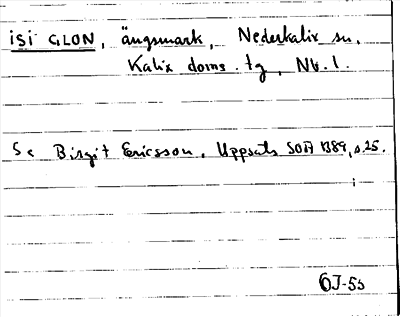 ISI GLON, ängsmark, Nederkalix sn.
Kalix doms. tg, Nb. l.
Se Birgit Ericsson, Uppsats SOFI 1389, s. 25.
OJ-55